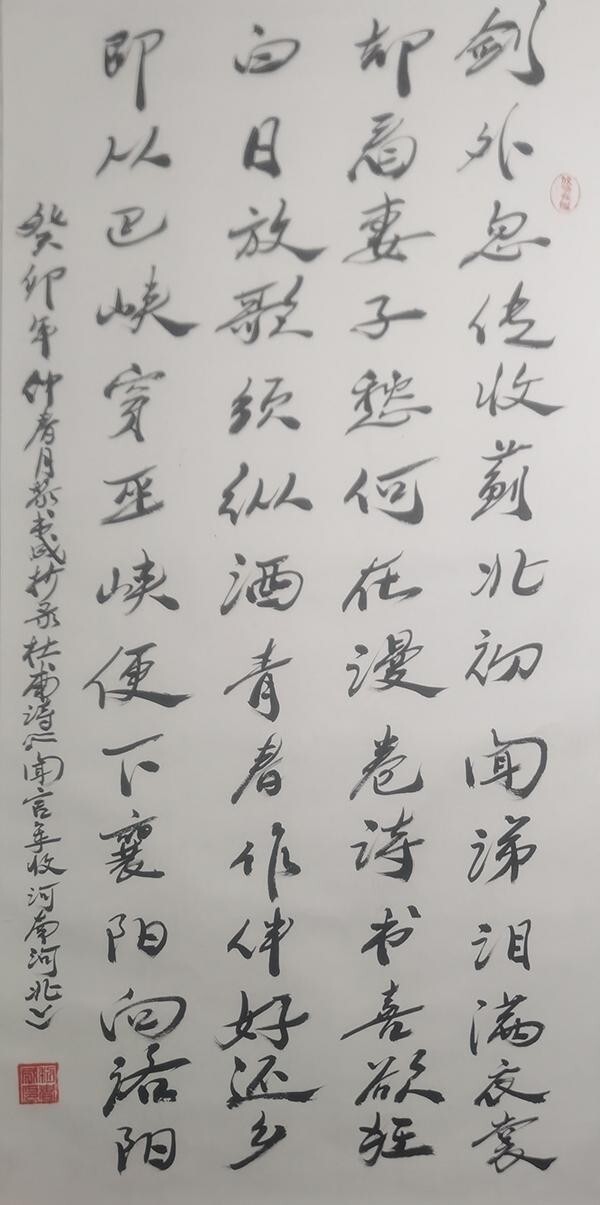 剑外忽传收蓟北初闻涕泪满衣裳
却看妻子愁何在漫卷诗书喜欲狂
白日放歌须纵酒青春作伴好还乡
即从巴峡穿巫峡便下襄阳向洛阳
癸卯年仲春月书成抄录杜甫诗《闻官军收河南河北》